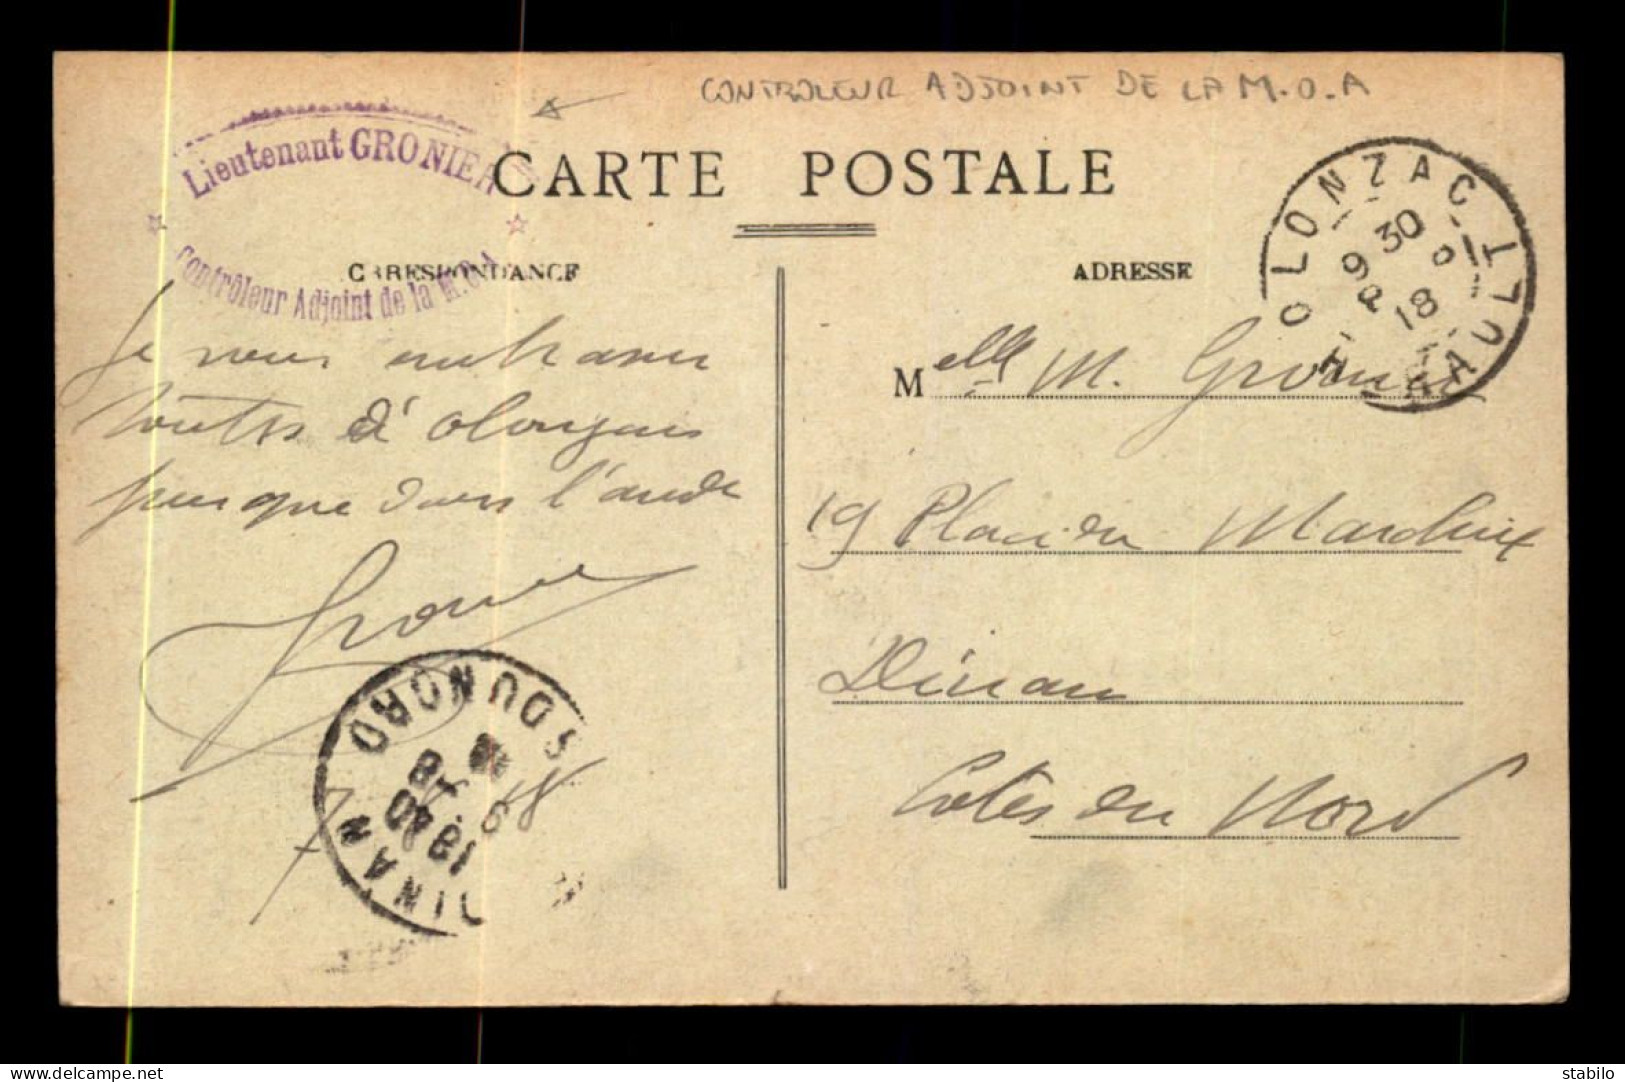 CONTROLEUR ADJOINT DE LA M.O.A
Lieutenant GRONIER
Contrôleur Adjoint de la M.O.A
CARTE POSTALE
CORRESPONDANCE
ADRESSE
OLONZAC HERAULT
9 30
8
18
Je vous embrasse
toutes d'Olonzac
presque dans l'aude
Gronier
DINAN
CÔTES DU NORD
18 40
9
18
Melle M. Gronier
19 Place du Marchix
Dinan
Côtes du Nord
delcampe.net
stabilo